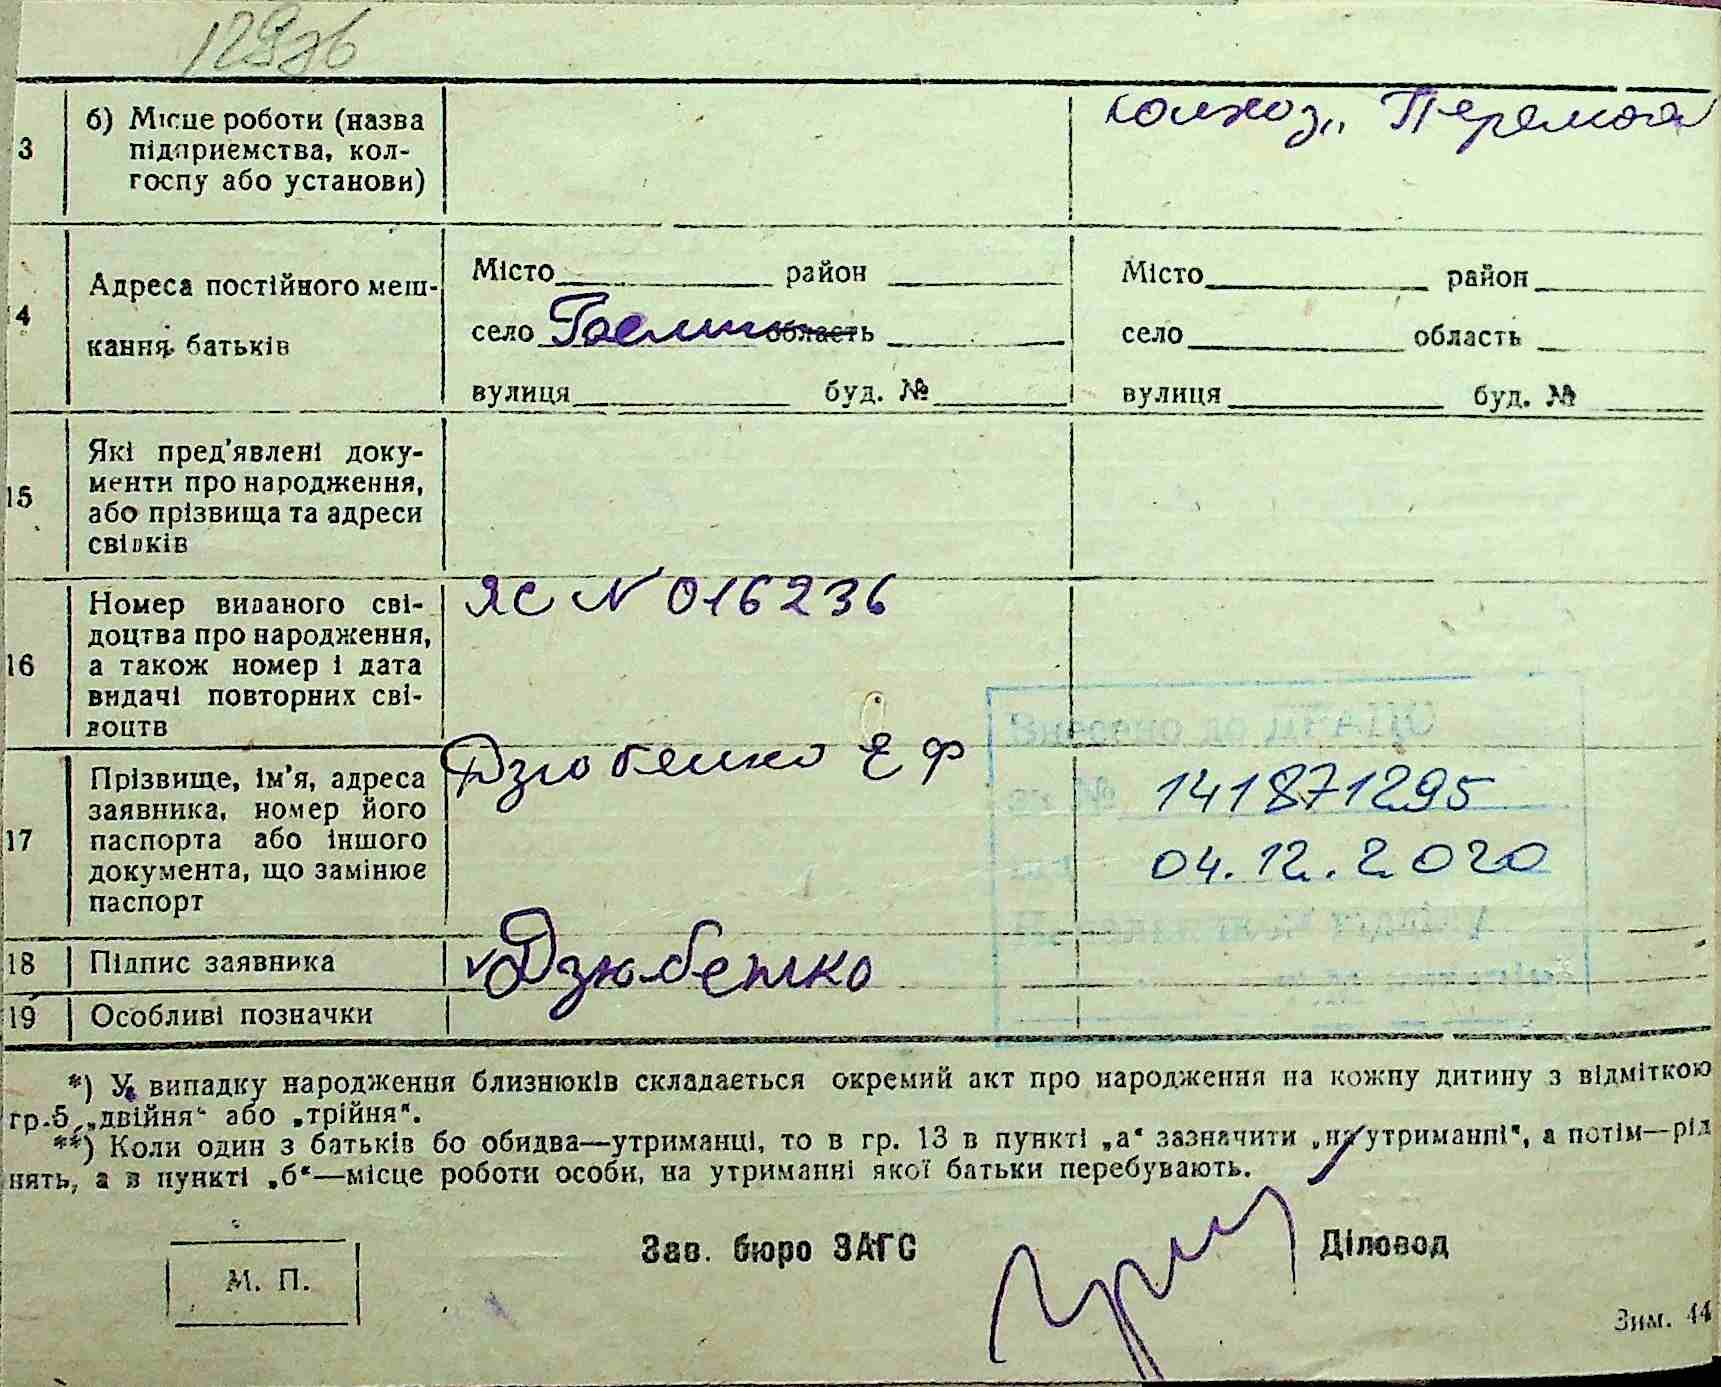 129зв
3 б) Місце роботи (назва
підприємства, кол-
госпу або установи)
колхоз „ Перемога
4 Адреса постійного меш-
кання батьків
Місто район
село область
вулиця буд. №
Місто район
село область
вулиця буд. №
15 Які пред'явлені доку-
менти про народження,
або прізвища та адреси
свідків
16 Номер виданого сві-
доцтва про народження,
а також номер і дата
видачі повторних сві-
доцтв
ЯС N 016236
17 Прізвище, ім'я, адреса
заявника, номер його
паспорта або іншого
документа, що замінює
паспорт
Дзюбенко Е Ф
Внесено до ДРАЦС
за № 141871295
04.12.2020
18 Підпис заявника
Дзюбенко
19 Особливі позначки
*) У випадку народження близнюків складається окремий акт про народження на кожну дитину з відміткою
гр.5 „двійня“ або „трійня“.
**) Коли один з батьків бо обидва—утриманці, то в гр. 13 в пункті „а“ зазначити „на утриманні“, а потім—рід
нять, а в пункті „б“—місце роботи особи, на утриманні якої батьки перебувають.
Зав. бюро ЗАГС
Діловод
М. П.
Зим. 44